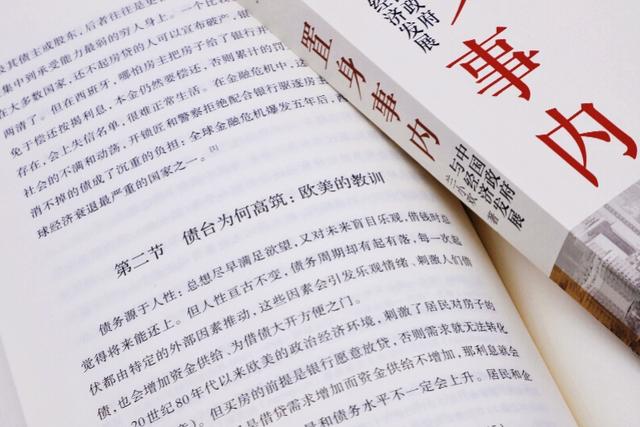 其债主或股东，后者往往是更
集中到承受能力最弱的穷人身上。一个比较
在大多数国家，还不起房贷的人可以宣布破产，
两清了。但在西班牙，哪怕房主把房子给了银行
免于偿还按揭利息，本金仍然要偿还，否则累计的罚
存在，会上失信名单，很难正常生活。在金融危机中，
社会的不满和动荡，开锁匠和警察拒绝配合银行驱逐房
消不掉的债成了沉重的负担；全球金融危机爆发五年后，
球经济衰退最严重的国家之一。[1]
第二节 债台为何高筑：欧美的教训
债务源于人性：总想尽早满足欲望，又对未来盲目乐观，借钱时总
觉得将来能还上。但人性亘古不变，债务周期却有起有落，每一次起
伏都由特定的外部因素推动，这些因素会引发乐观情绪、刺激人们借
债，也会增加资金供给、为借债大开方便之门。
20世纪80年代以来欧美的政治经济环境，刺激了居民对房子的
）。但买房的前提是银行愿意放贷，否则需求就无法转化
是借贷需求增加而资金供给不增加，那利息就会
和债务水平不一定会上升。居民和企
置身事内
中国政府
与经济发展
兰小欢 著
事内
政府
经济发展